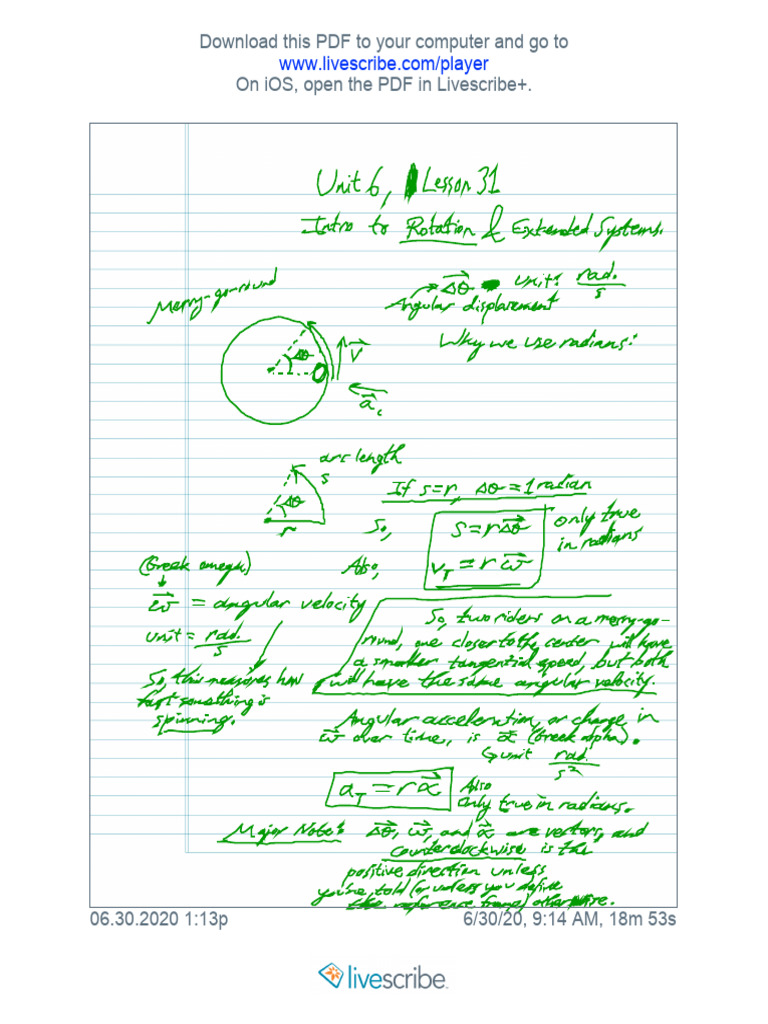 Download this PDF to your computer and go to
www.livescribe.com/player
On iOS, open the PDF in Livescribe+.
Unit 6, Lesson 31
Intro to Rotation & Extended Systems.
Merry-go-round
Δθ⃗ unit: rad./s
Angular displacement
Why we use radians:
Δθ
v⃗
a⃗c
arc length
s
Δθ
r
If s=r, Δθ = 1 radian
So,
s = rΔθ⃗
only true
in radians
Also,
vT = rω⃗
(Greek omega)
ω⃗ = angular velocity
unit = rad./s
So, this measures how
fast something is
spinning.
So, two riders on a merry-go-
round, one closer to the center will have
a smaller tangential speed, but both
will have the same angular velocity.
Angular acceleration, or change in
ω⃗ over time, is α⃗ (Greek alpha).
unit rad./s²
aT = rα⃗
Also
only true in radians.
Major Note: Δθ⃗, ω⃗, and α⃗ are vectors, and
counterclockwise is the
positive direction unless
you're told (or unless you define
the reference frame) otherwise.
06.30.2020 1:13p
6/30/20, 9:14 AM, 18m 53s
livescribe